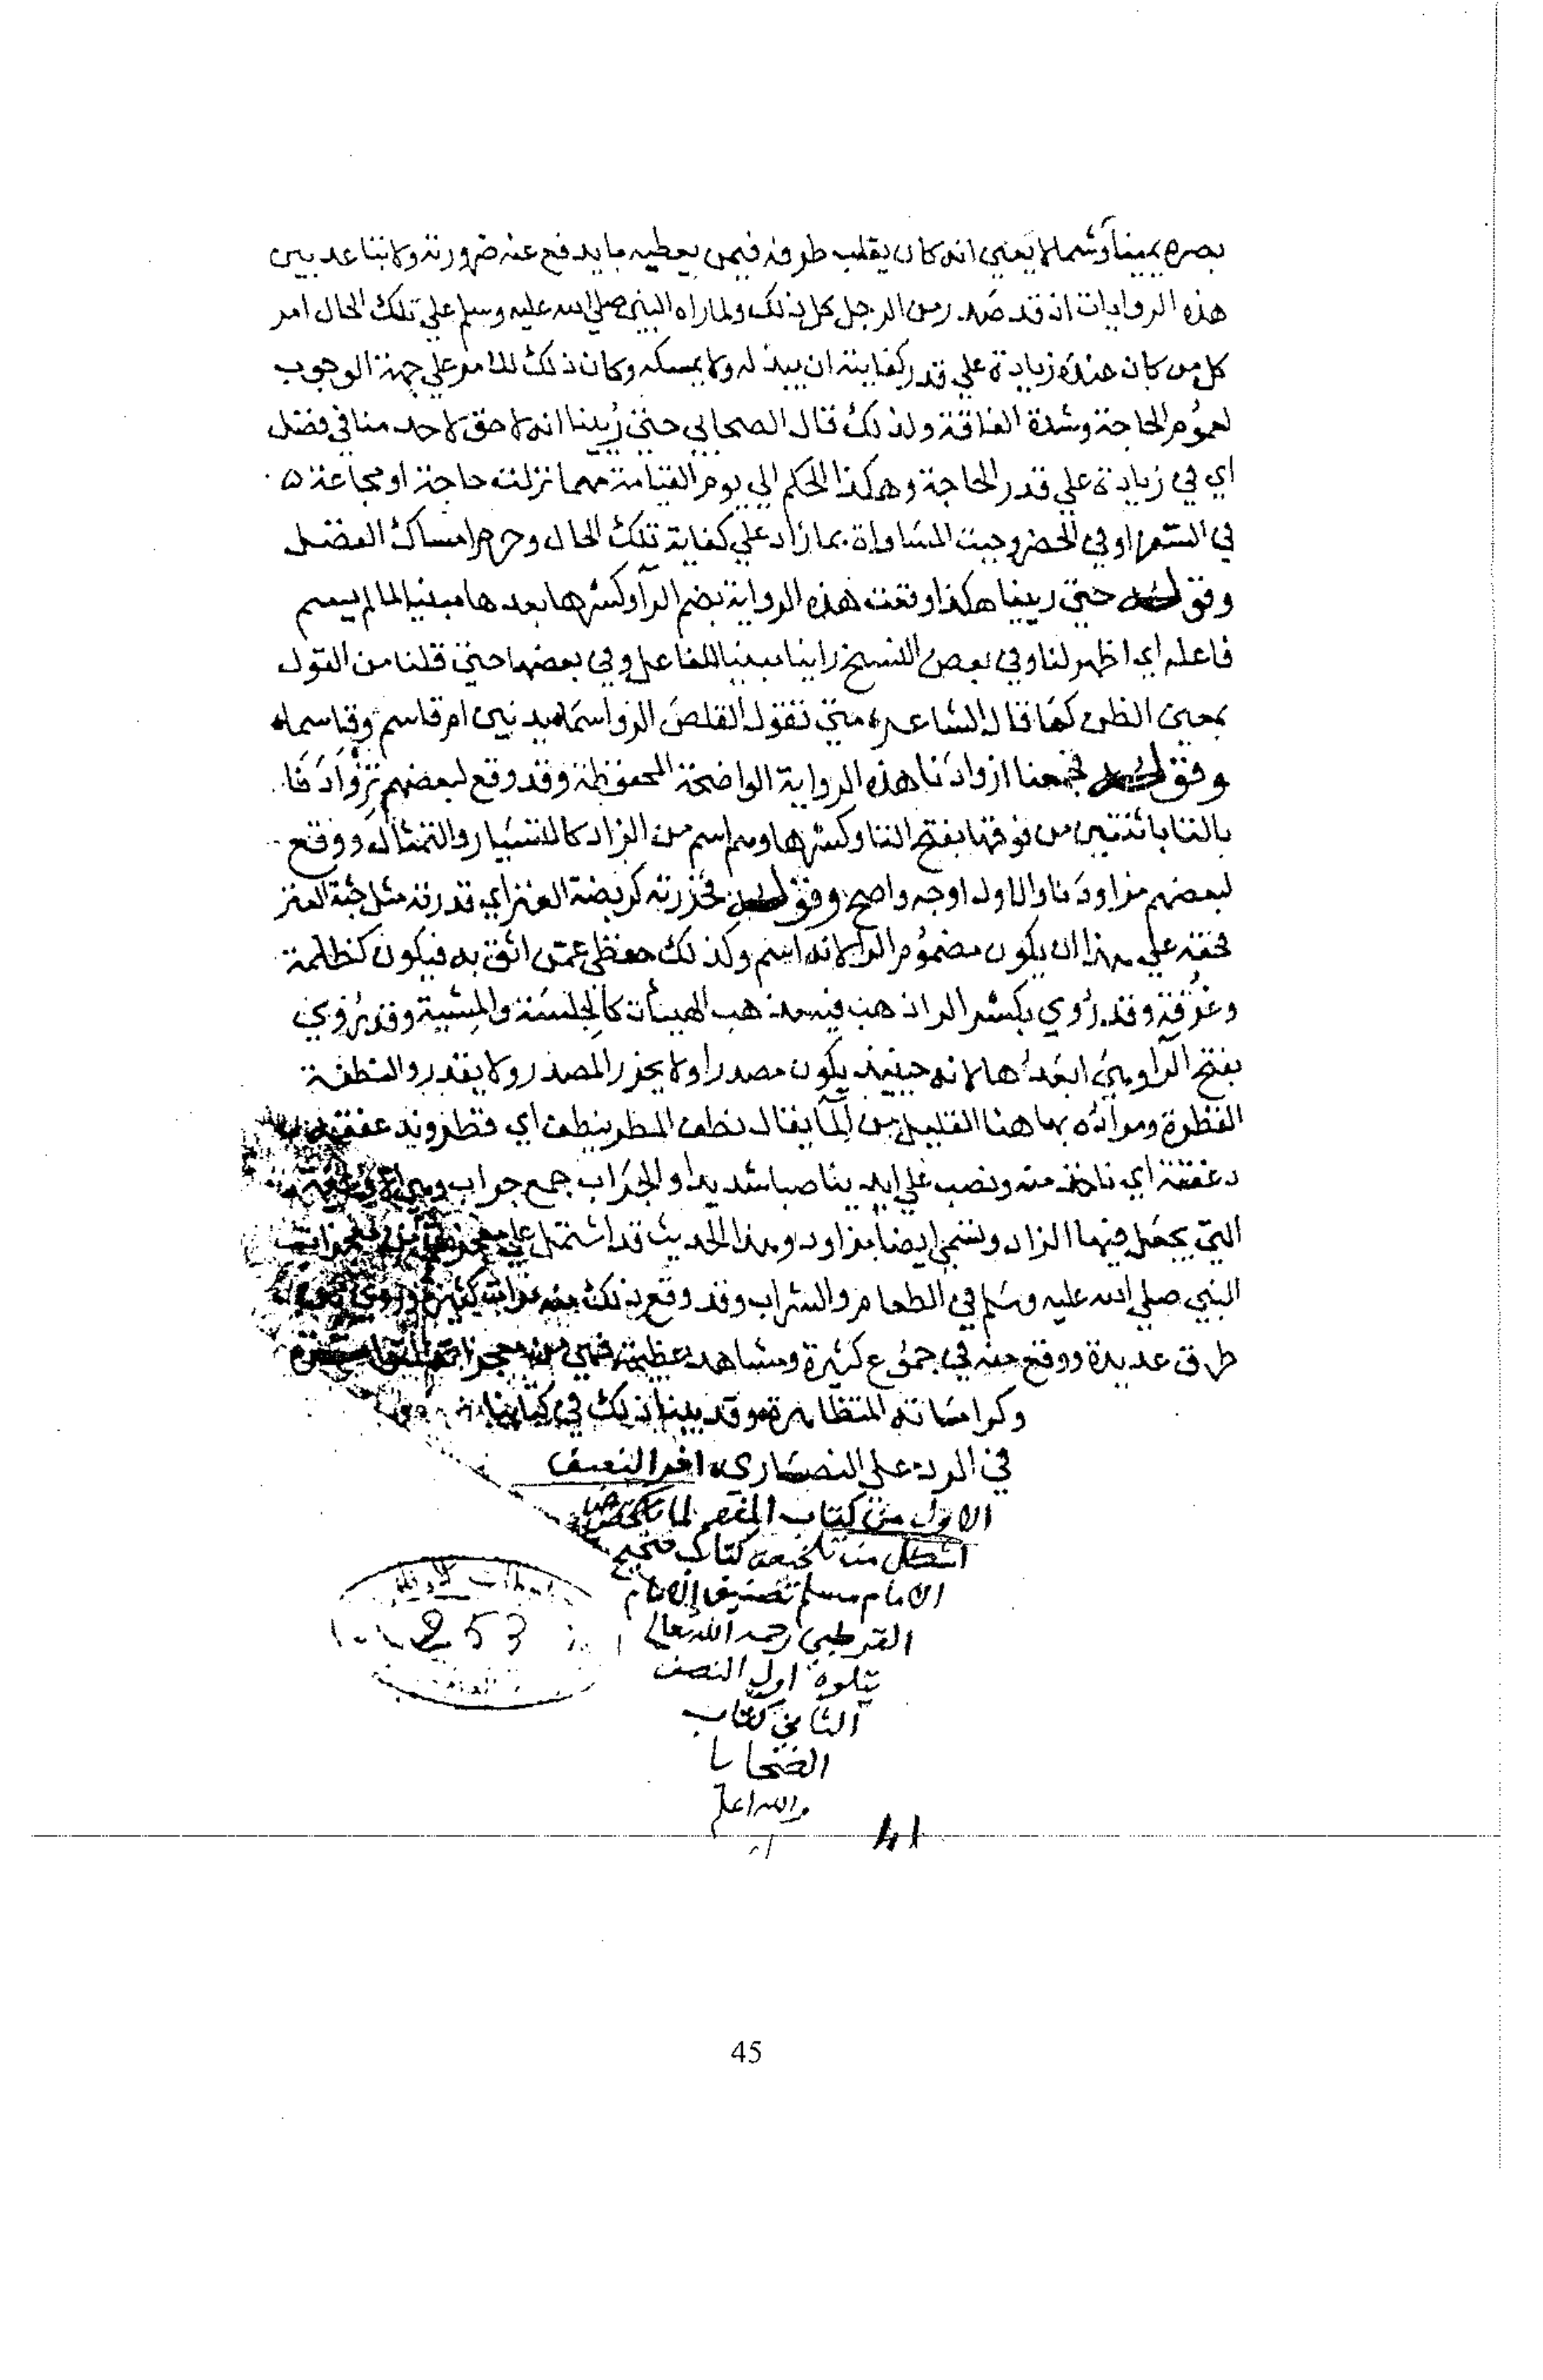 بصره يمينا وشمالا يعني انه كان يقلب طرفه فيمن يعطيه ما يدفع عنه ضرورته ولا تباعد بين
هذه الروايات اذ قد صدر من الرجل كل ذلك ولما راه النبي صلي الله عليه وسلم علي تلك الحال امر
كل من كان عنده زيادة علي قدر كفايته ان يبذله ولا يمسكه وكان ذلك الامر علي جهة الوجوب
لعموم الحاجة وشدة الفاقة ولذلك قال الصحابي حتي رُيينا انه لا حق لاحد منا في فضل
اي في زيادة علي قدر الحاجة وهكذا الحكم الي يوم القيامة مهما نزلت حاجة او مجاعة ه
في السفر او في الحضر وجبت المساواة بما زاد علي كفاية تلك الحال وحرم امساك الفضل
وقوله حتي ريينا هكذا وقعت هذه الرواية بضم الرآ وكسر ها بعدها مبنيا لما لم يسم
فاعله اي اظهر لنا وفي بعض النسخ راينا مبنيا للفاعل وفي بعضها حتي قلنا من القول
بمعني الظن كما قال الشاعر ه متي تقول القلص الرواسما يدنين ام قاسم وقاسما ه
وقوله فجمعنا ازوادنا هذه الرواية الواضحة المحفوظة وقد وقع لبعضهم تزوادنا
بالتا باثنتين من فوقها بفتح التا وكسرها وهو اسم من الزاد كالتسيار والتمثال ووقع
لبعضهم مزاودنا والاول اوجه واصح وقوله فحزرته كربضة العنز اي قدرته مثل جثة العنز
فحقه علي هذا ان يكون مضموم الرا لانه اسم وكذلك حفظي عمن اثق به فيكون كظلمة
وغرفة وقد رُوي بكسر الرا ذهب فيه مذهب الهيئات كالجلسة والمشية وقد رُوي
بفتح الرا وهي ابعدها لانه حينيذ يكون مصدرا ولا يحزر المصدر ولا يقدر والنطفة
القطرة ومراده بها هنا القليل من المآ يقال نطف المطر ينطف اي قطر وندغفقه
دغفقة اي ناخذ منه ونصب علي ايدينا صبا شديدا والجرب جمع جراب وهي الاوعية
التي يجعل فيها الزاد وتسمي ايضا مزاود وهذا الحديث قد اشتمل علي
النبي صلي الله عليه وسلم في الطعام والشراب وقد وقع ذلك منه مرات كثيرة وروي
طرق عديدة ووقع منه في جموع كثيرة ومشاهد عظيمة فهي من معجزاته المتواترة
وكراماته المتظاهرة وقد بينا ذلك في كتابنا
في الرد علي النصاري ه اخر النصف
الاول من كتاب المفهم لما
اشكل من تلخيص كتاب صحيح
الامام مسلم تصنيف الامام
القرطبي رحمه الله تعالي
يتلوه اول النصف
الثاني كتاب
الضحايا
والله اعلم
253
45